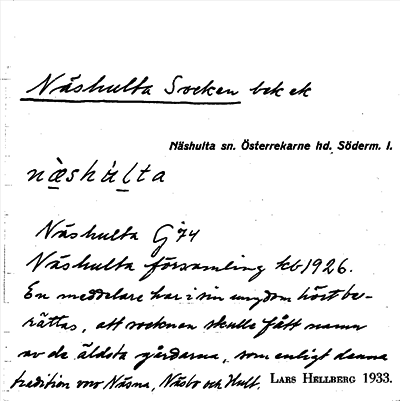 Näshulta Socken bek ek
Näshulta sn. Österrekarne hd. Söderm. l.
næ̀shúlta
Näshulta G 74
Näshulta församling kb 1926.
En meddelare har i sin ungdom hört be-
rättas, att socknen skulle fått namn
av de äldsta gårdarna, som enligt denna
tradition voro Näsna, Näsbo och Hult. LARS HELLBERG 1933.